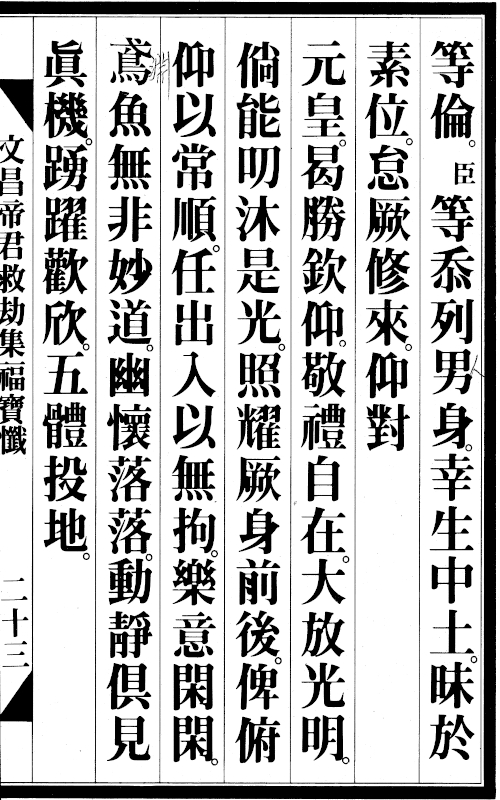 等倫。臣等忝列男身。幸生中土。昧於
素位。怠厥修來。仰對
元皇。曷勝欽仰。敬禮自在。大放光明。
倘能叨沐是光。照耀厥身前後。俾俯
仰以常順。任出入以無拘。樂意閑閑。
鳶魚無非妙道。幽懷落落。動靜俱見
眞機。踴躍歡欣。五體投地。
文昌帝君救劫集福寶懺
二十三